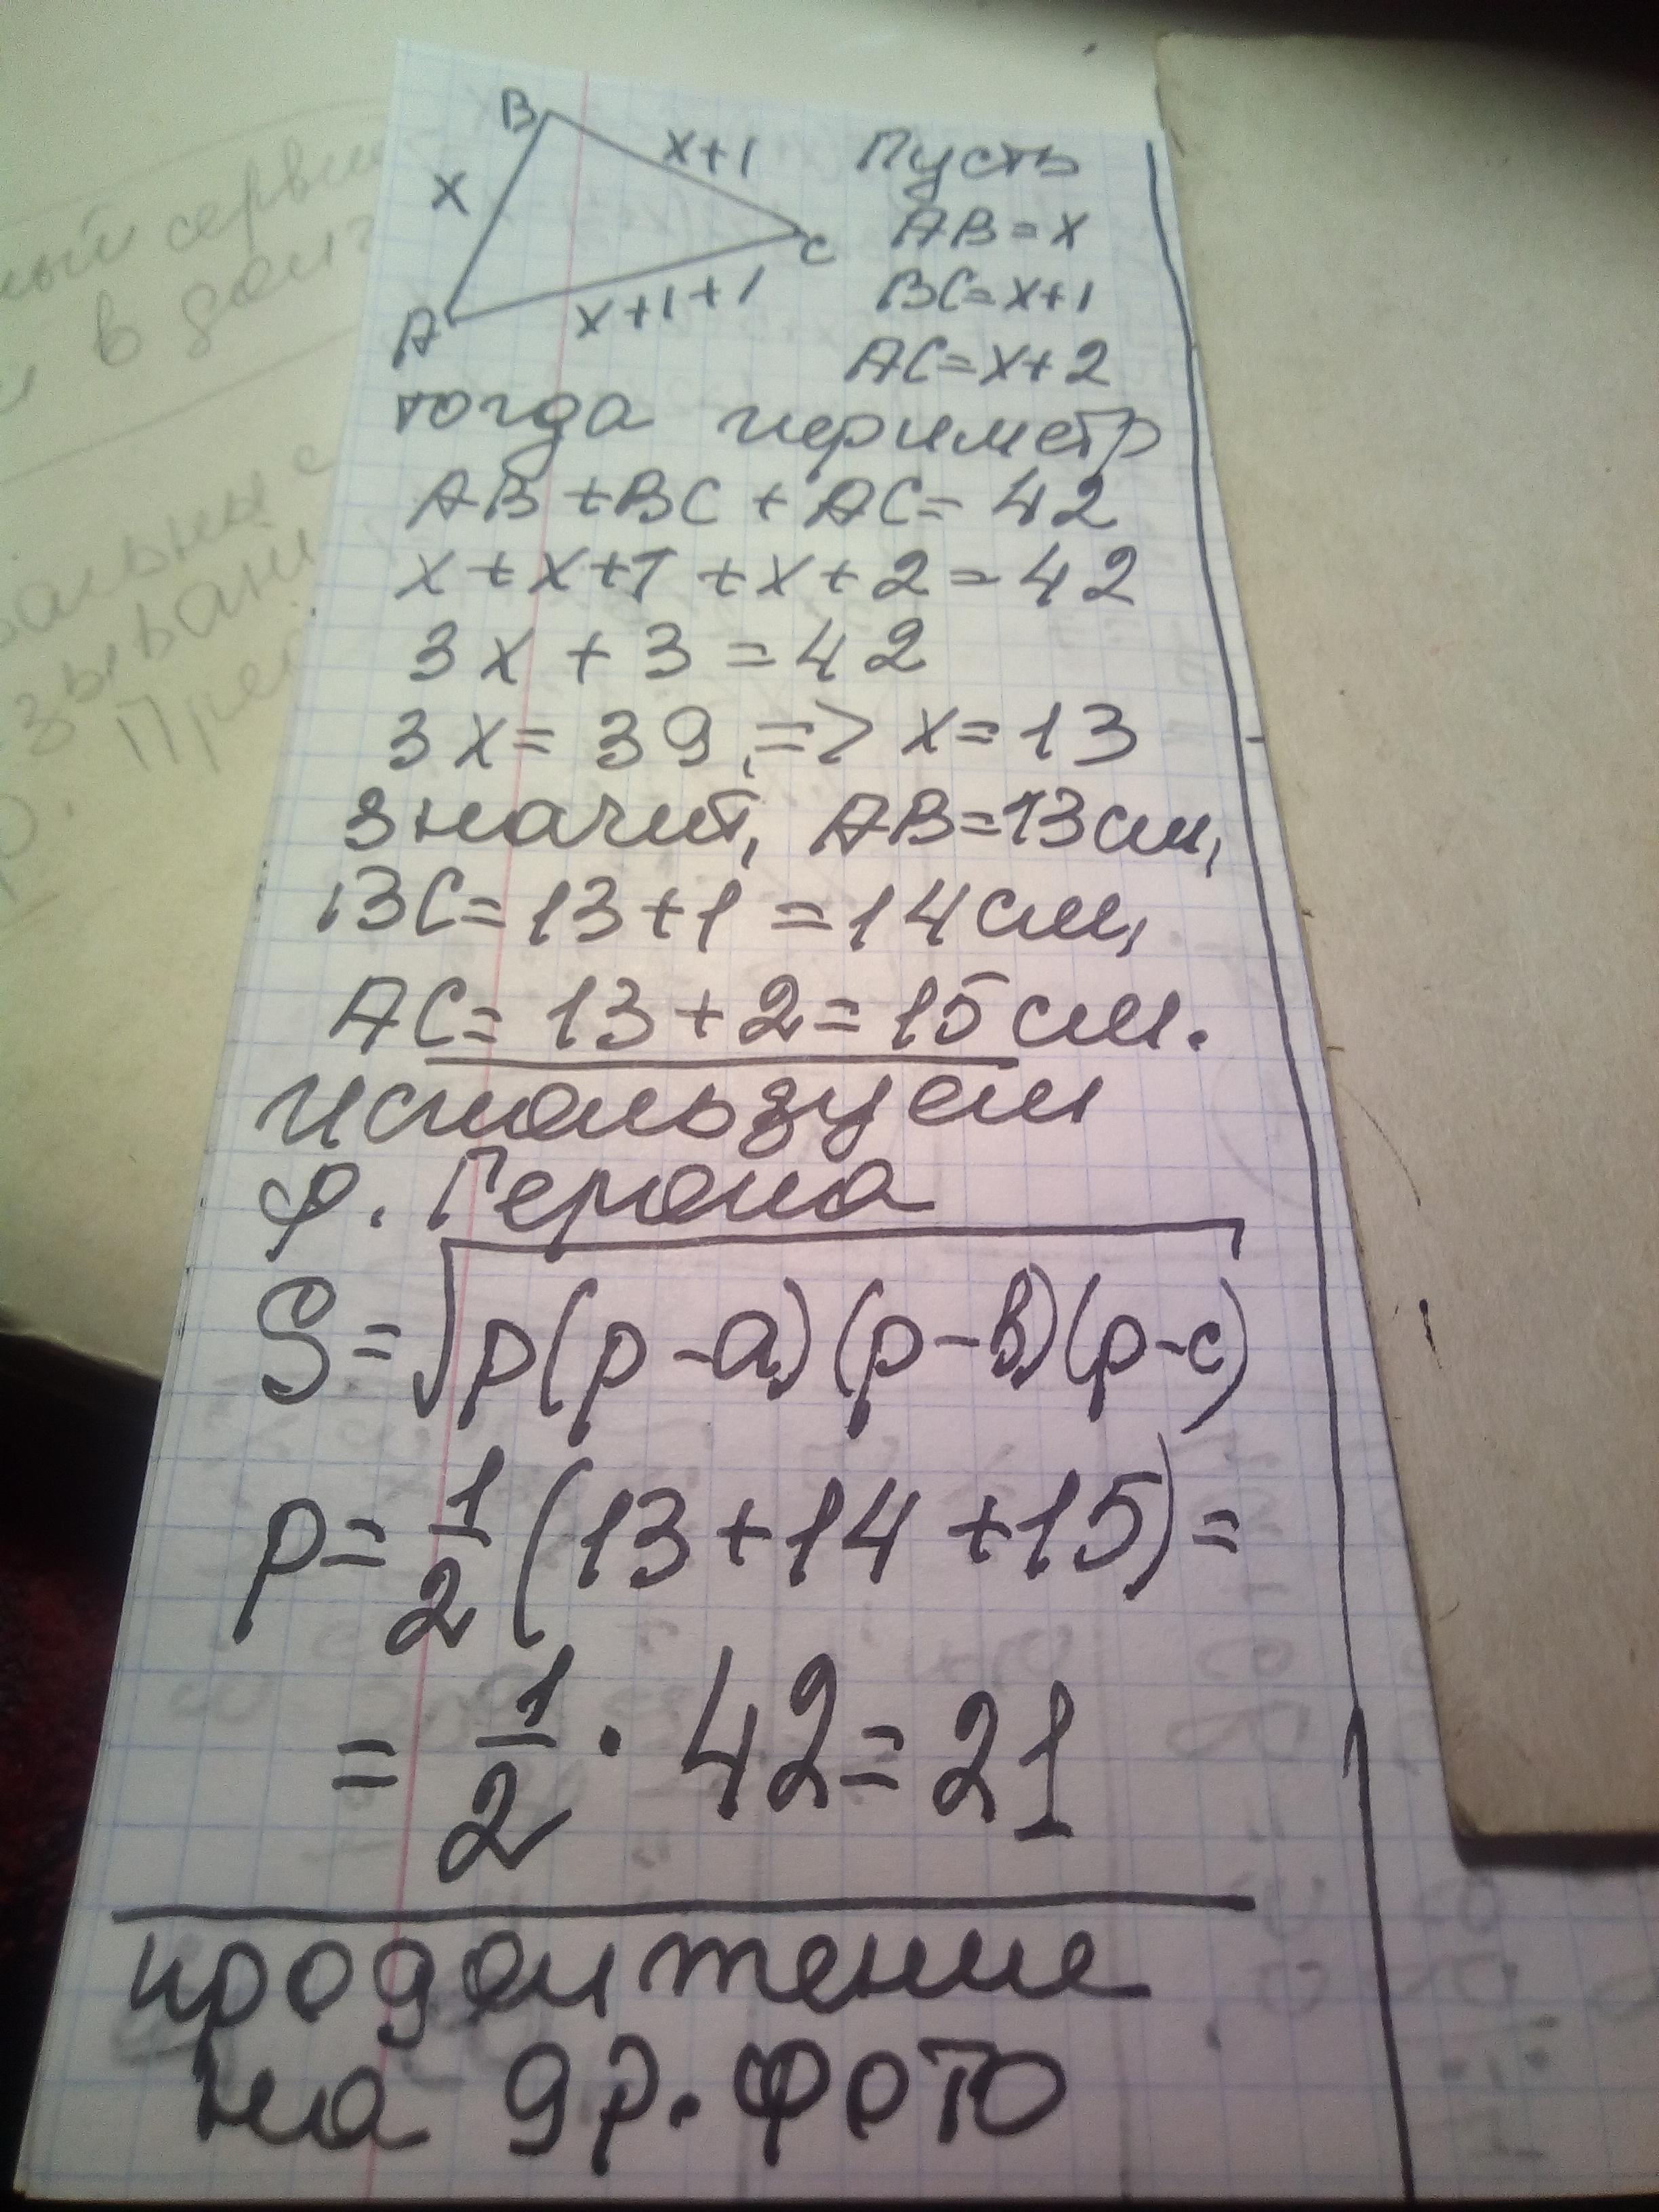 B
x+1
x
C
A
x+1+1
Пусть
AB=x
BC=x+1
AC=x+2
тогда периметр
AB+BC+AC=42
x+x+1+x+2=42
3x+3=42
3x=39, => x=13
значит, AB=13см,
BC=13+1=14см,
AC=13+2=15см.
используем
ф. Герона
S=√p(p-a)(p-b)(p-c)
p=1/2(13+14+15)=
=1/2·42=21
продолжение
на др. фото
ный
в